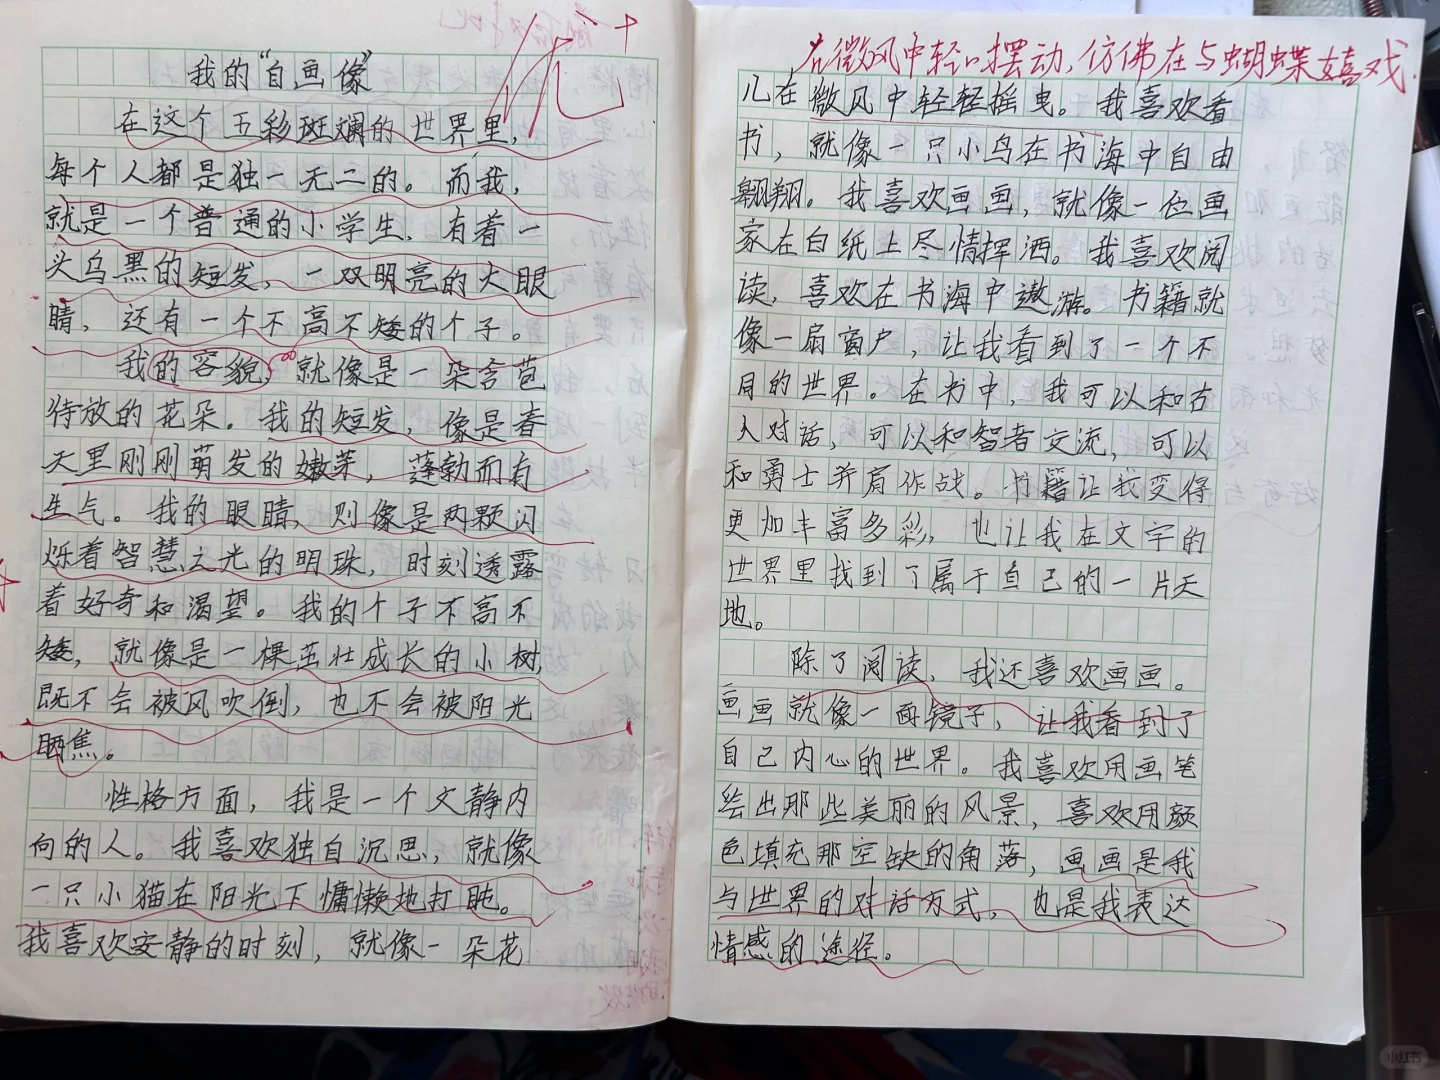 优+
我的“自画像”
在这个五彩斑斓的世界里，
每个人都是独一无二的。而我，
就是一个普通的小学生，有着一
头乌黑的短发，一双明亮的大眼
睛，还有一个不高不矮的个子。
我的容貌，就像是一朵含苞
待放的花朵。我的短发，像是春
天里刚刚萌发的嫩芽，蓬勃而有
生气。我的眼睛，则像是两颗闪
烁着智慧之光的明珠，时刻透露
着好奇和渴望。我的个子不高不
矮，就像是一棵茁壮成长的小树，
既不会被风吹倒，也不会被阳光
晒焦。
性格方面，我是一个文静内
向的人。我喜欢独自沉思，就像
一只小猫在阳光下慵懒地打盹。
我喜欢安静的时刻，就像一朵花
在微风中轻轻摆动，仿佛在与蝴蝶嬉戏.
儿在微风中轻轻摇曳。我喜欢看
书，就像一只小鸟在书海中自由
翱翔。我喜欢画画，就像一位画
家在白纸上尽情挥洒。我喜欢阅
读，喜欢在书海中遨游。书籍就
像一扇窗户，让我看到了一个不
同的世界。在书中，我可以和古
人对话，可以和智者交流，可以
和勇士并肩作战。书籍让我变得
更加丰富多彩，也让我在文字的
世界里找到了属于自己的一片天
地。
除了阅读，我还喜欢画画。
画画就像一面镜子，让我看到了
自己内心的世界。我喜欢用画笔
绘出那些美丽的风景，喜欢用颜
色填充那空缺的角落，画画是我
与世界的对话方式，也是我表达
情感的途径。
小红书